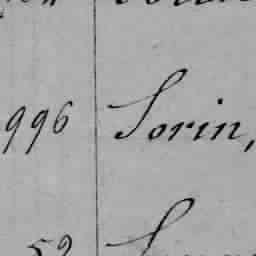 996 Sorin,
52